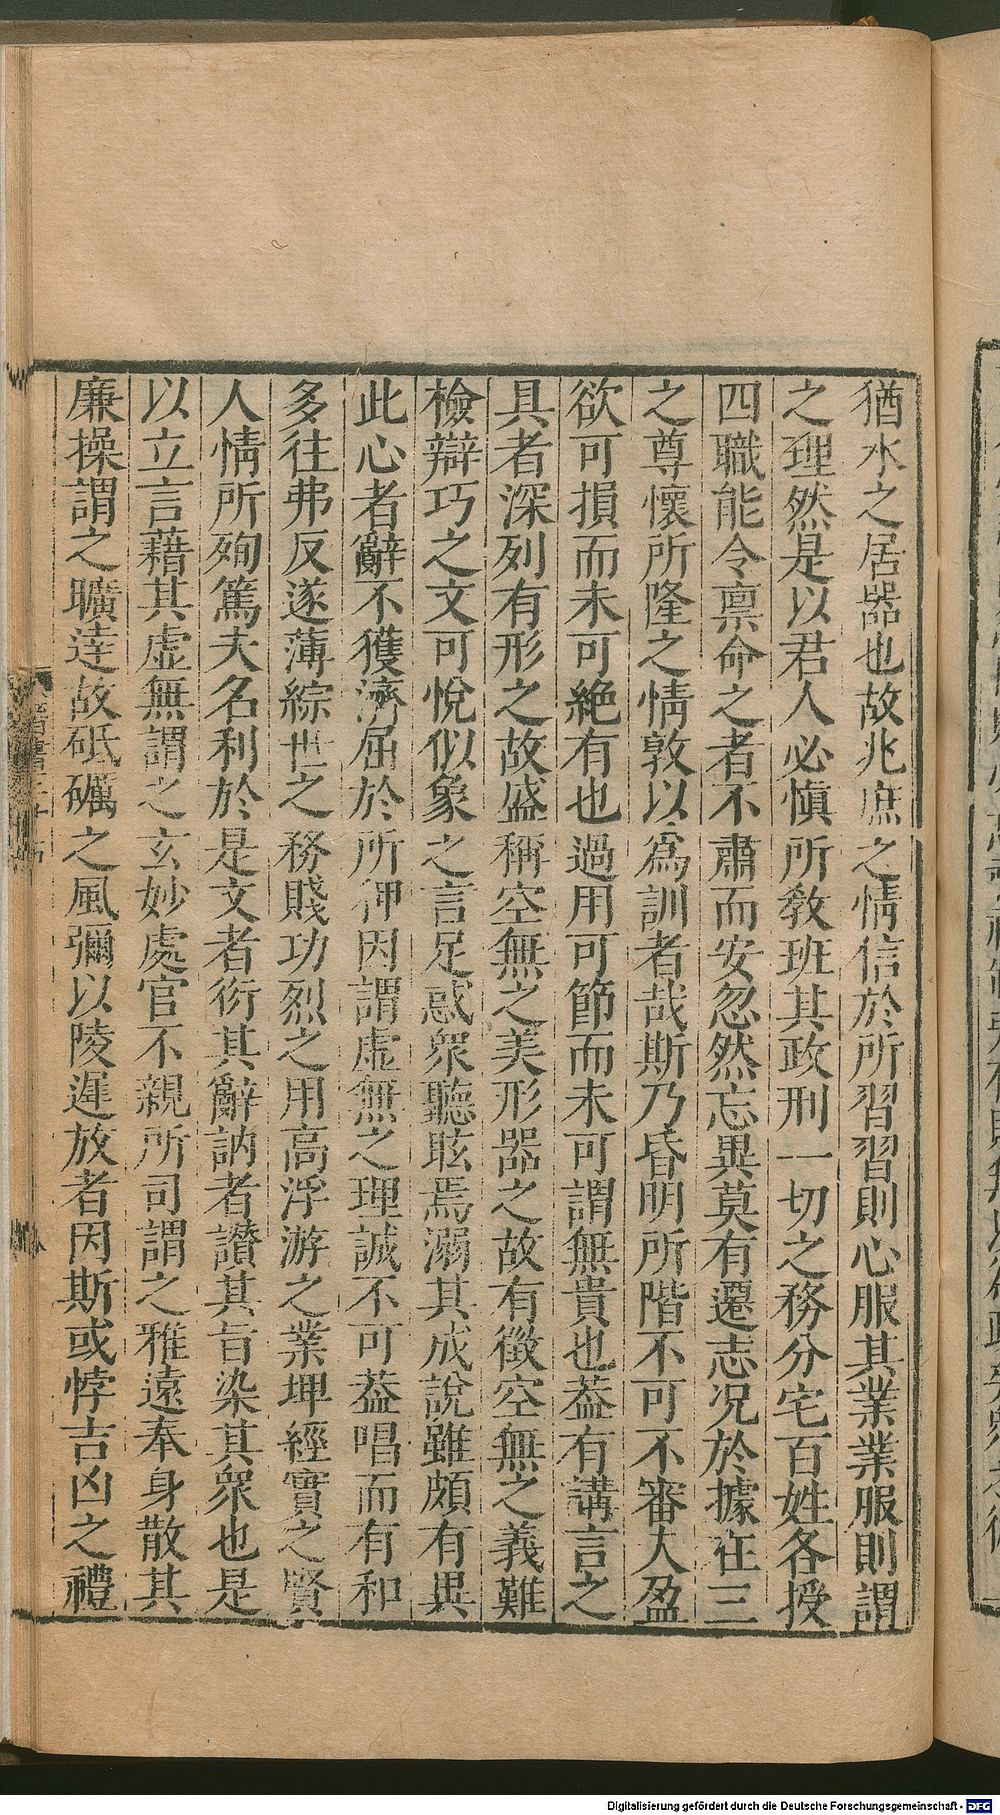 猶水之居器也故兆庶之情信於所習習則心服其業業服則謂
之理然是以君人必慎所教班其政刑一切之務分宅百姓各授
四職能令禀命之者不肅而安忽然忘異莫有遷志况於據在三
之尊懷所隆之情敦以爲訓者哉斯乃昏明所階不可不審大盈
欲可損而未可絶有也過用可節而未可謂無貴也葢有講言之
具者深列有形之故盛稱空無之美形器之故有徵空無之義難
檢辯巧之文可悅似象之言足惑衆聽眩焉溺其成說雖頗有異
此心者辭不獲濟屈於所狎因謂虚無之理誠不可葢唱而有和
多往弗反遂薄綜世之務賤功烈之用高浮游之業埤經實之賢
人情所殉篤夫名利於是文者衍其辭訥者讃其旨染其衆也是
以立言藉其虚無謂之玄妙處官不親所司謂之雅遠奉身散其
廉操謂之曠達故砥礪之風彌以陵遲放者因斯或悖吉凶之禮
Digitalisierung gefördert durch die Deutsche Forschungsgemeinschaft - DFG